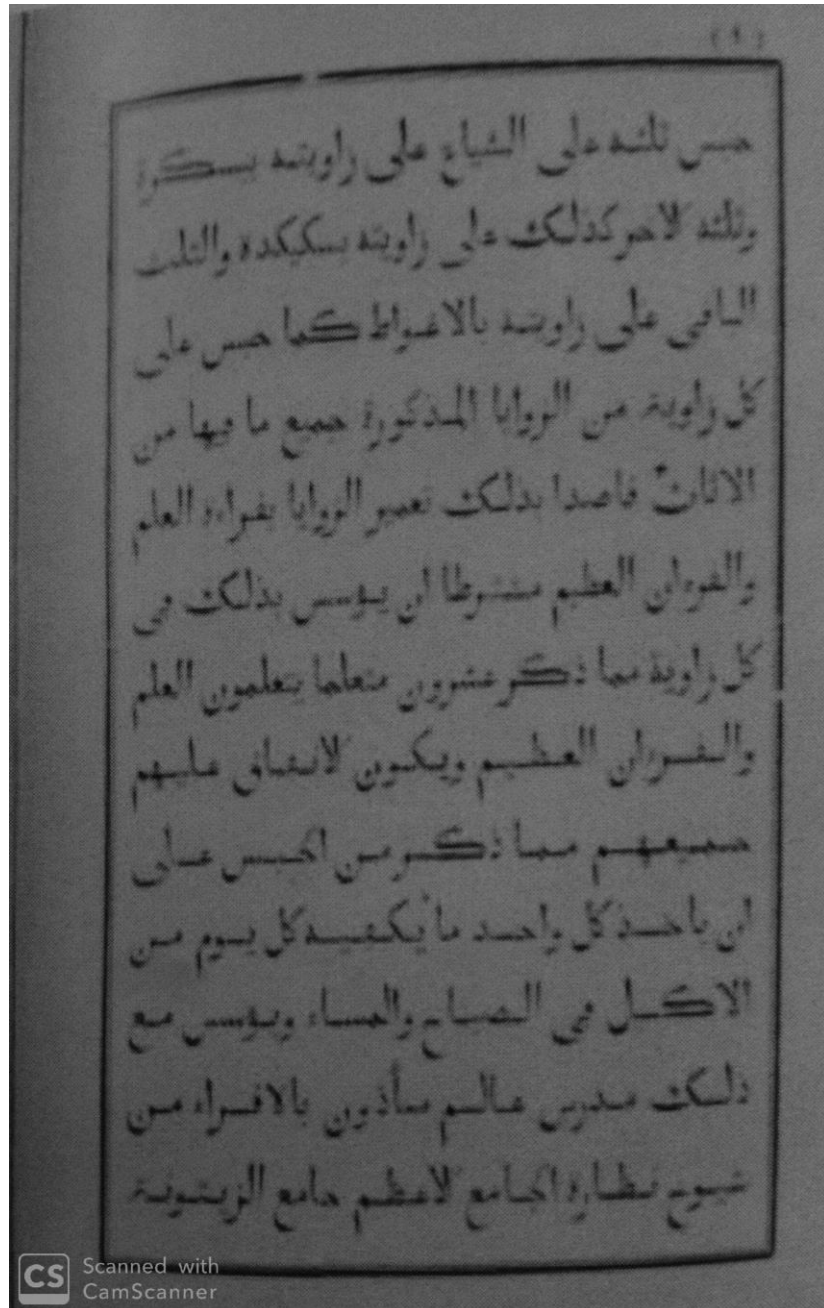 (٩)
حبس ثلثه على الشياع على زاويته ببسكرة
وثلثه الاخر كذلك على زاويته بسكيكدة والثلث
الباقي على زاويته بالاغواط كما حبس على
كل زاوية من الزوايا المذكورة جميع ما فيها من
الاثاث قاصدا بذلك تعمير الزوايا بقراءة العلم
والقرءان العظيم مشترطا ان يؤسس بذلك في
كل زاوية مما ذكر عشرون متعلما يتعلمون العلم
والقرءان العظيم ويكون الانفاق عليهم
جميعهم مما ذكر من الحبس على
ان ياخذ كل واحد ما يكفيه كل يوم من
الاكل في الصباح والمساء ويؤسس مع
ذلك مدرس عالم مأذون بالاقراء من
شيوخ نظارة الجامع الاعظم جامع الزيتونة
CS Scanned with
CamScanner